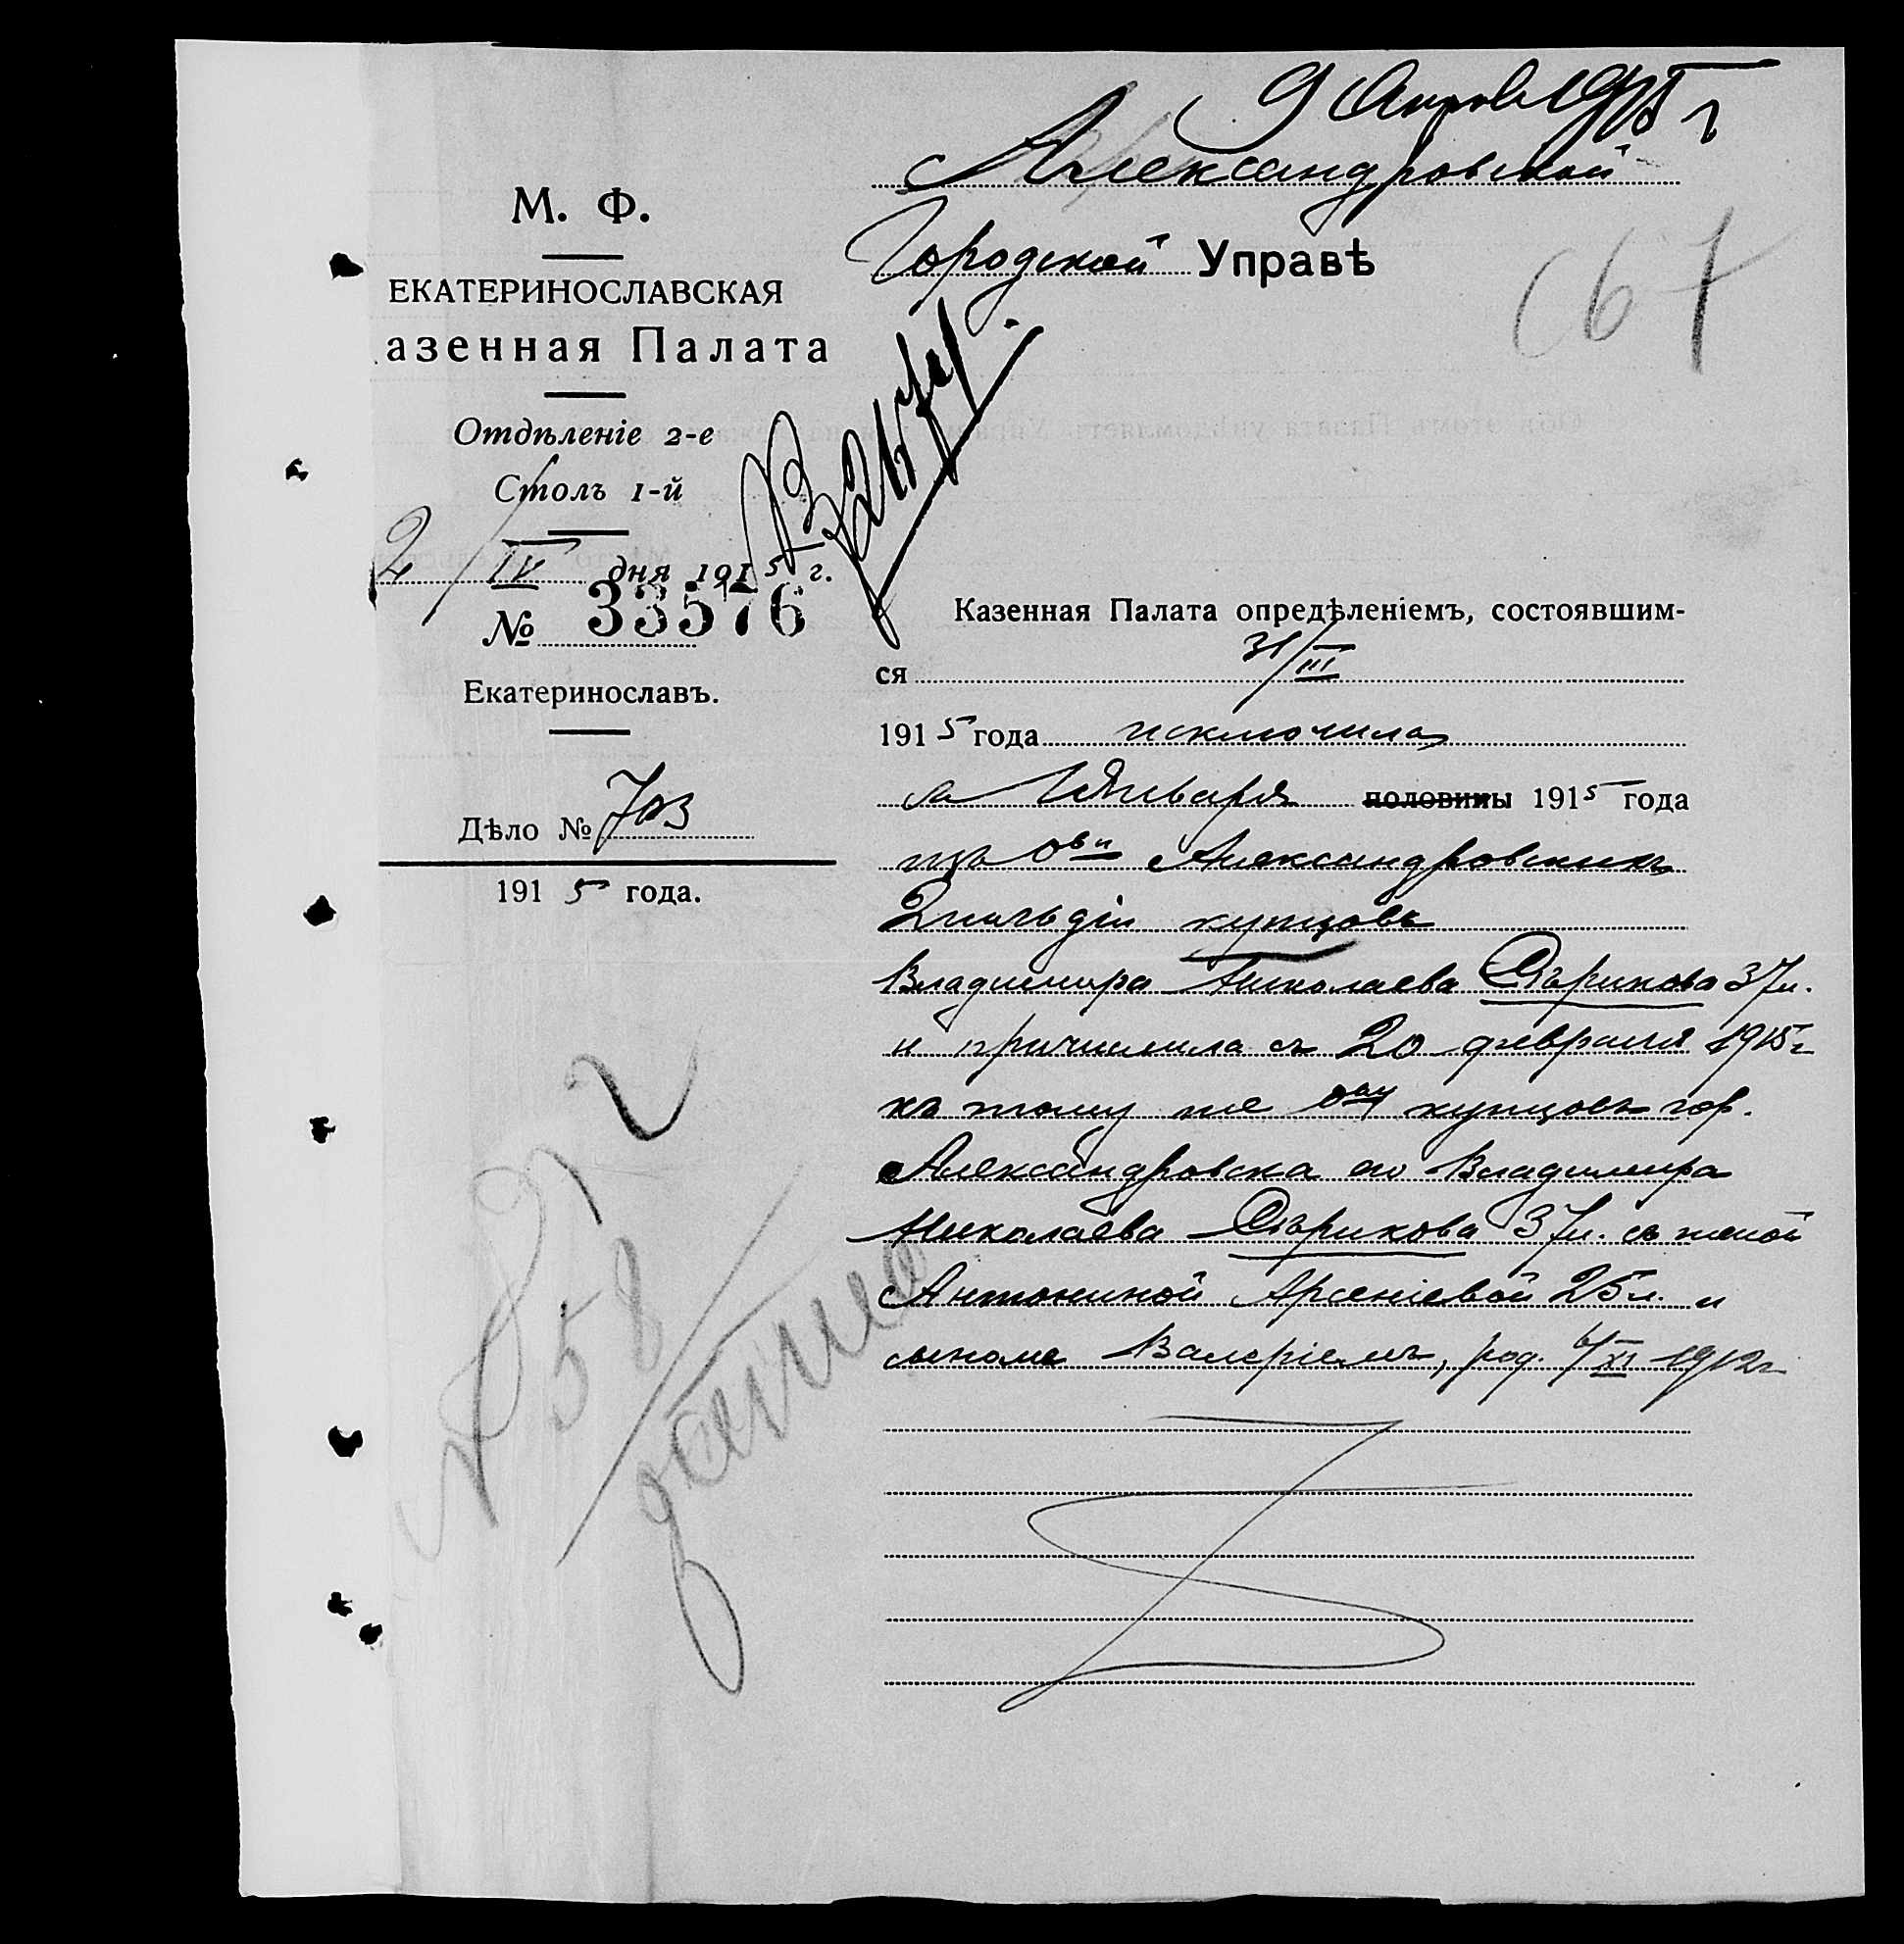 9 Апрель 1915 г
Александровской
Городской Управѣ
67
М. Ф.
ЕКАТЕРИНОСЛАВСКАЯ
азенная Палата
Отдѣленіе 2-е
Столъ 1-й
2/IV дня 1915 г.
№ 33576
Екатеринославъ.
Дѣло № 703
1915 года.
Казенная Палата опредѣленіемъ, состоявшим-
ся 31/III
1915 года исключила
съ 1 Января половины 1915 года
изъ о-ва Александровскихъ
2 гильдіи купцовъ
Владимира Николаева 37 л.
и причислила съ 20 февраля 1915 г
къ тому же о-ву купцовъ гор.
Александровска его Владимира
Николаева 37 л. съ женой
Антониной Арсеніевой 25 л. и
сыномъ Валеріемъ, род. 6/XI 1912 г
58